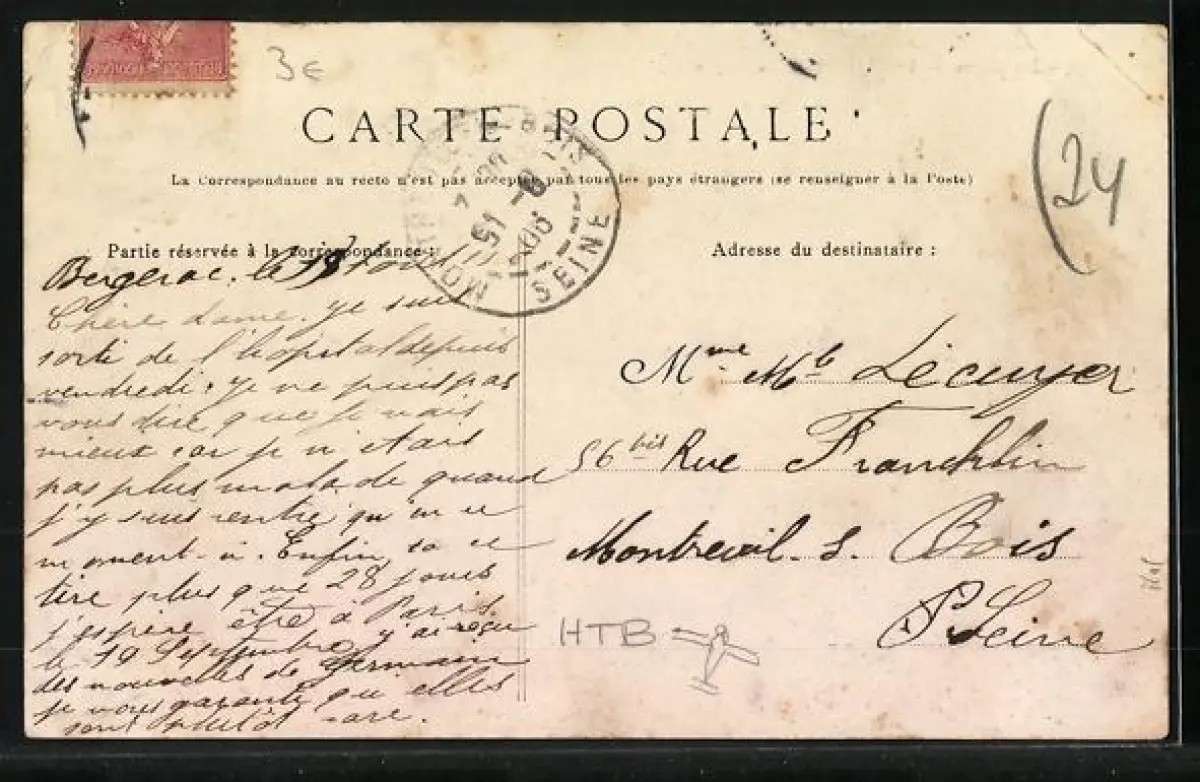 3€
CARTE POSTALE
La Correspondance au recto n'est pas acceptée par tous les pays étrangers (se renseigner à la Poste)
24
SEINE
Partie réservée à la correspondance :
Adresse du destinataire :
Bergerac, le
Chère dame. Je suis
sorti de l'hopital depuis
vendredi. Je ne puis pas
vous dire que je vais
mieux car je n'etais
pas plus malade quand
j'y suis rentré qu'en ce
moment-ci. Enfin, sa ce
tire plus que 28 jours
j'espère être à Paris
le 19 Septembre, j'ai reçu
des nouvelles de Germain
je vous garantie qu'elles
sont plutôt rare.
Mme Mle Lécuyer
56 bis Rue Francklin
Montreuil. s. Bois
Seine
HTB